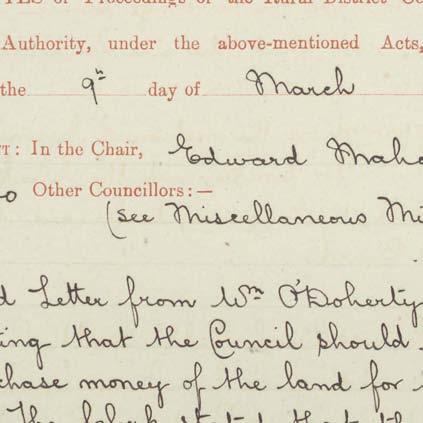 of Proceedings of the Rural District
Authority, under the above-mentioned Acts,
the 9th day of March
: In the Chair, Edward
Other Councillors:—
(see Miscellaneous
Letter from Wm O'Doherty
that the Council should
money of the land for
The Clerk stated that